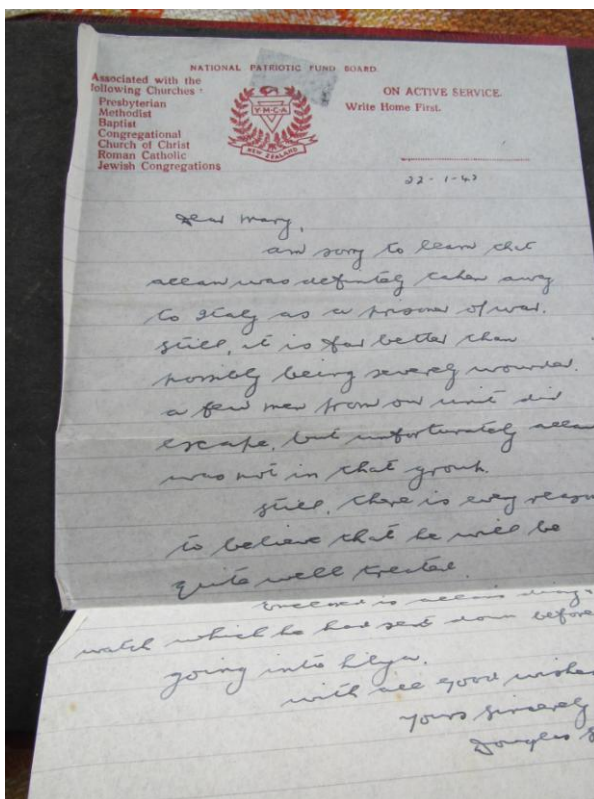 NATIONAL PATRIOTIC FUND BOARD.
Associated with the
following Churches :
Presbyterian
Methodist
Baptist
Congregational
Church of Christ
Roman Catholic
Jewish Congregations
Y·M·C·A
NEW ZEALAND
ON ACTIVE SERVICE.
Write Home First.
22-1-42
Dear Mary,
am sorry to learn that
Allan was definitely taken away
to Italy as a prisoner of war.
Still, it is far better than
possibly being severely wounded.
A few men from our unit did
escape, but unfortunately Allan
was not in that group.
Still, there is every reason
to believe that he will be
quite well treated.
Enclosed is Allan's
watch which he had sent down before
going into Libya.
With all good wishes
Yours sincerely
Douglas